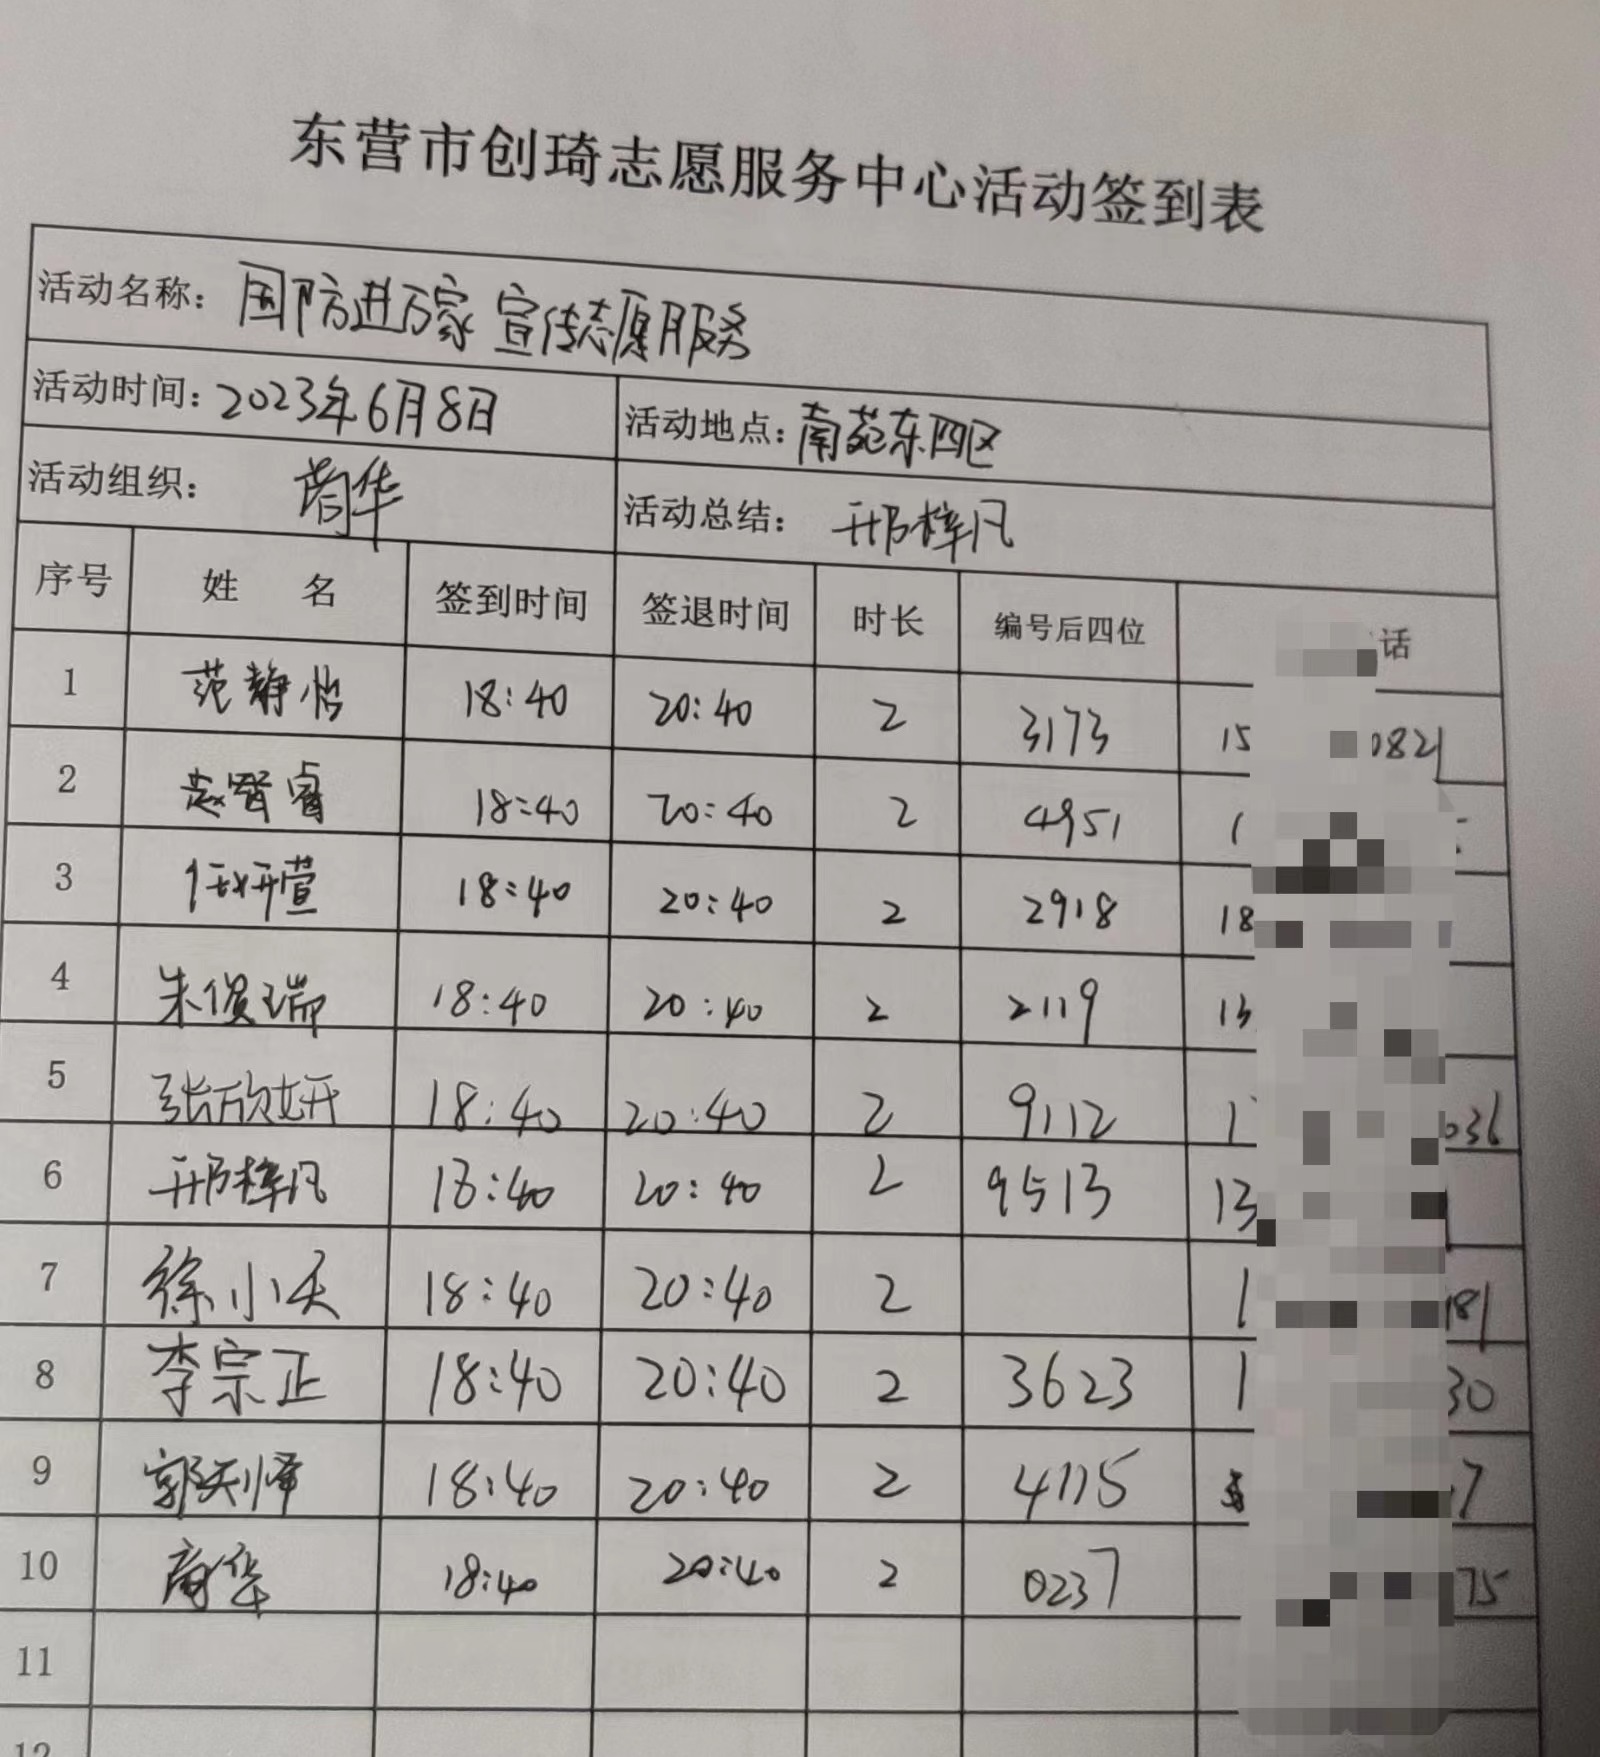 东营市创琦志愿服务中心活动签到表
活动名称: 国防进万家 宣传志愿服务
活动时间: 2023年6月8日 活动地点: 南苑东四区
活动组织: 商华 活动总结: 邢梓凡
序号 姓 名 签到时间 签退时间 时长 编号后四位 话
1 范静怡 18:40 20:40 2 3173 15 0821
2 赵智睿 18:40 20:40 2 4951 1
3 任妍萱 18:40 20:40 2 2918 18
4 朱俊瑞 18:40 20:40 2 2119 13
5 张欣妍 18:40 20:40 2 9112 1 036
6 邢梓凡 18:40 20:40 2 9513 13
7 徐小天 18:40 20:40 2 1 181
8 李宗正 18:40 20:40 2 3623 1 30
9 郭天 18:40 20:40 2 4115 7
10 商华 18:40 20:40 2 0237 75
11
12